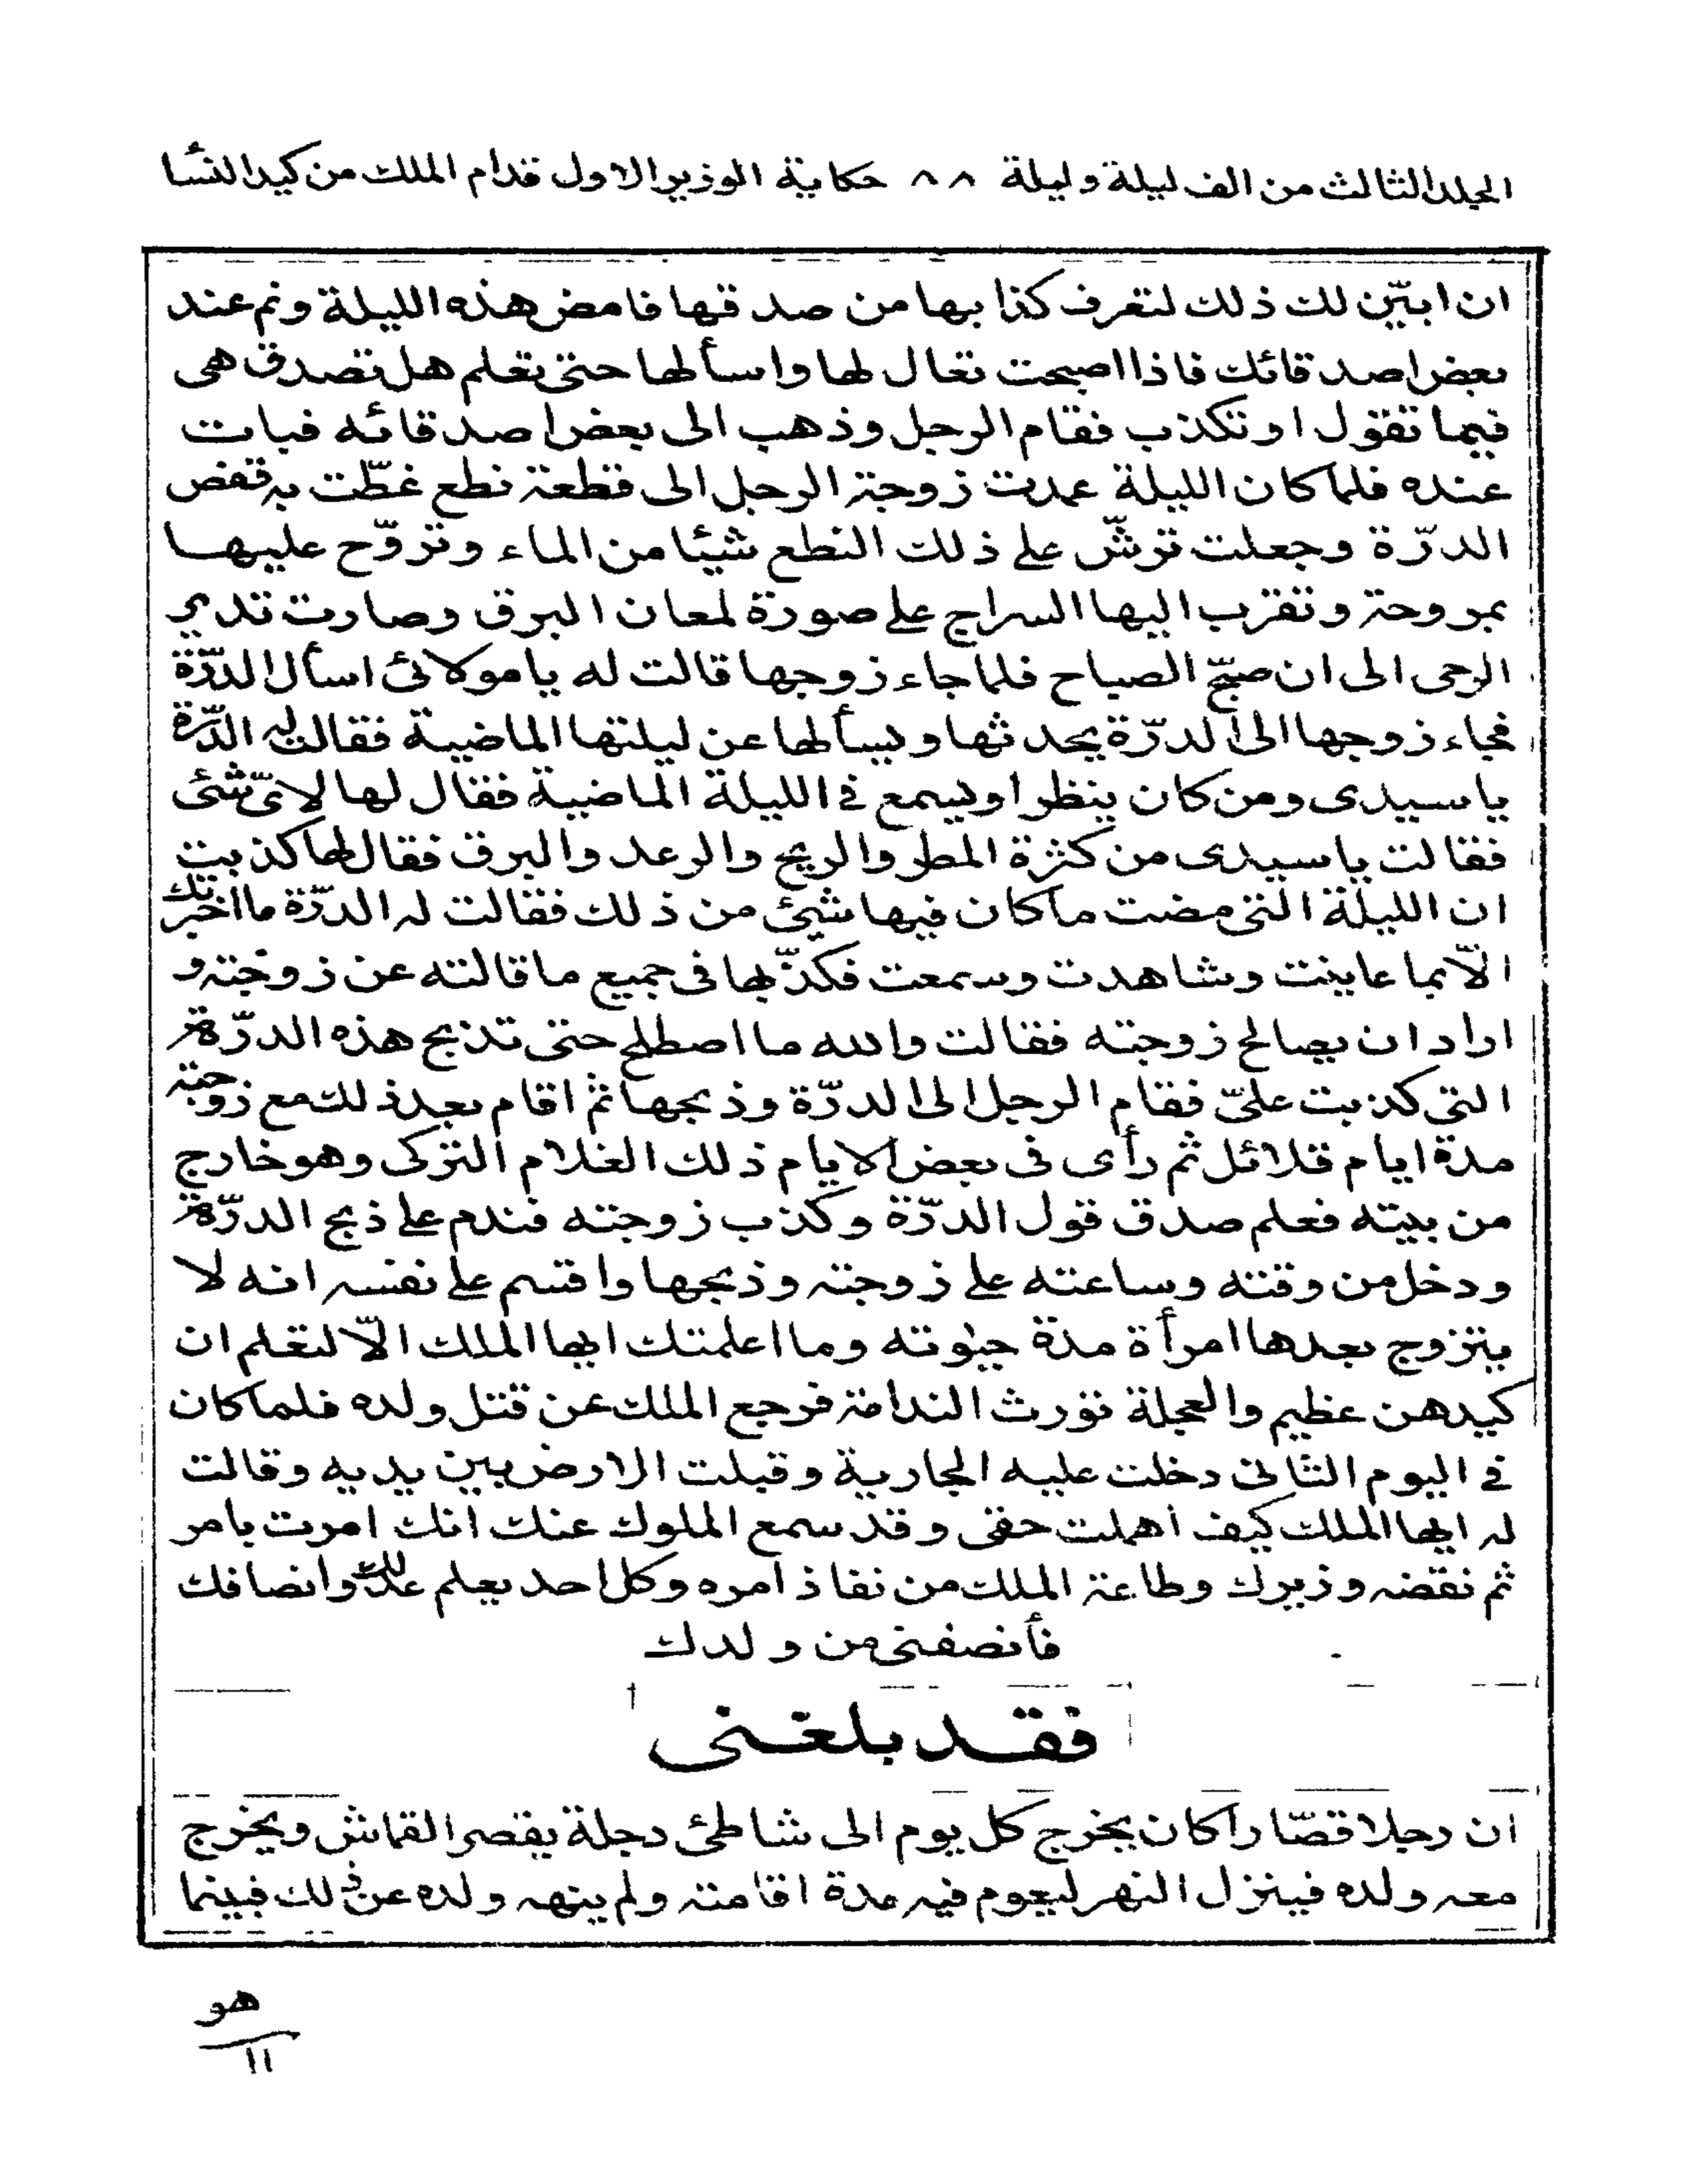 المجلد الثالث من الف ليلة وليلة ٨٨ حكاية الوزير الاول قدام الملك من كيد النسأ
ان ابيّن لك ذلك لتعرف كذابها من صدقها فامض هذه الليلة ونم عند
بعض اصدقائك فاذا اصبحت تعال لها واسألها حتى تعلم هل تصدق هى
فيما تقول او تكذب فقام الرجل وذهب الى بعض اصدقائه فبات
عنده فلما كان الليلة عمدت زوجة الرجل الى قطعة نطع غطّت به قفص
الدرّة وجعلت ترشّ على ذلك النطع شيئا من الماء وتروّح عليها
بمروحة وتقرب اليها السراج على صورة لمعان البرق وصارت تدير
الرحى الى ان صبّح الصباح فلما جاء زوجها قالت له يا مولائى اسأل الدرّة
فجاء زوجها الى الدرّة يحدثها ويسألها عن ليلتها الماضية فقالت له الدّرة
يا سيدى ومن كان ينظر او يسمع فى الليلة الماضية فقال لها لاىّ شئى
فقالت يا سيدى من كثرة المطر والريح والرعد والبرق فقال لها كذبت
ان الليلة التى مضت ما كان فيها شيئ من ذلك فقالت له الدرّة ما اخبرتك
الّا بما عاينت وشاهدت وسمعت فكذّبها فى جميع ما قالته عن زوجته و
اراد ان يصالح زوجته فقالت والله ما اصطلح حتى تذبح هذه الدرّة
التى كذبت علىّ فقام الرجل الى الدرّة وذبحها ثم اقام بعد ذلك مع زوجته
مدة ايام قلائل ثم رأى فى بعض الايام ذلك الغلام التركى وهو خارج
من بيته فعلم صدق قول الدرّة وكذب زوجته فندم على ذبح الدرّة
ودخل من وقته وساعته على زوجته وذبحها واقسم على نفسه انه لا
يتزوج بعدها امرأة مدة حيوته وما اعلمتك ايها الملك الّا لتعلم ان
كيدهن عظيم والعجلة تورث الندامة فرجع الملك عن قتل ولده فلما كان
فى اليوم الثانى دخلت عليه الجارية وقبلت الارض بين يديه وقالت
له ايها الملك كيف أهملت حقى وقد سمع الملوك عنك انك امرت بامر
ثم نقضه وزيرك وطاعة الملك من نفاذ امره وكل احد يعلم عدلك وانصافك
فأنصفنى من ولدك
فقد بلغنى
ان رجلا قصّارا كان يخرج كل يوم الى شاطئ دجلة يقصر القماش ويخرج
معه ولده فينزل النهر ليعوم فيه مدة اقامته ولم ينهه ولده عن ذلك فبينما
هو
١١